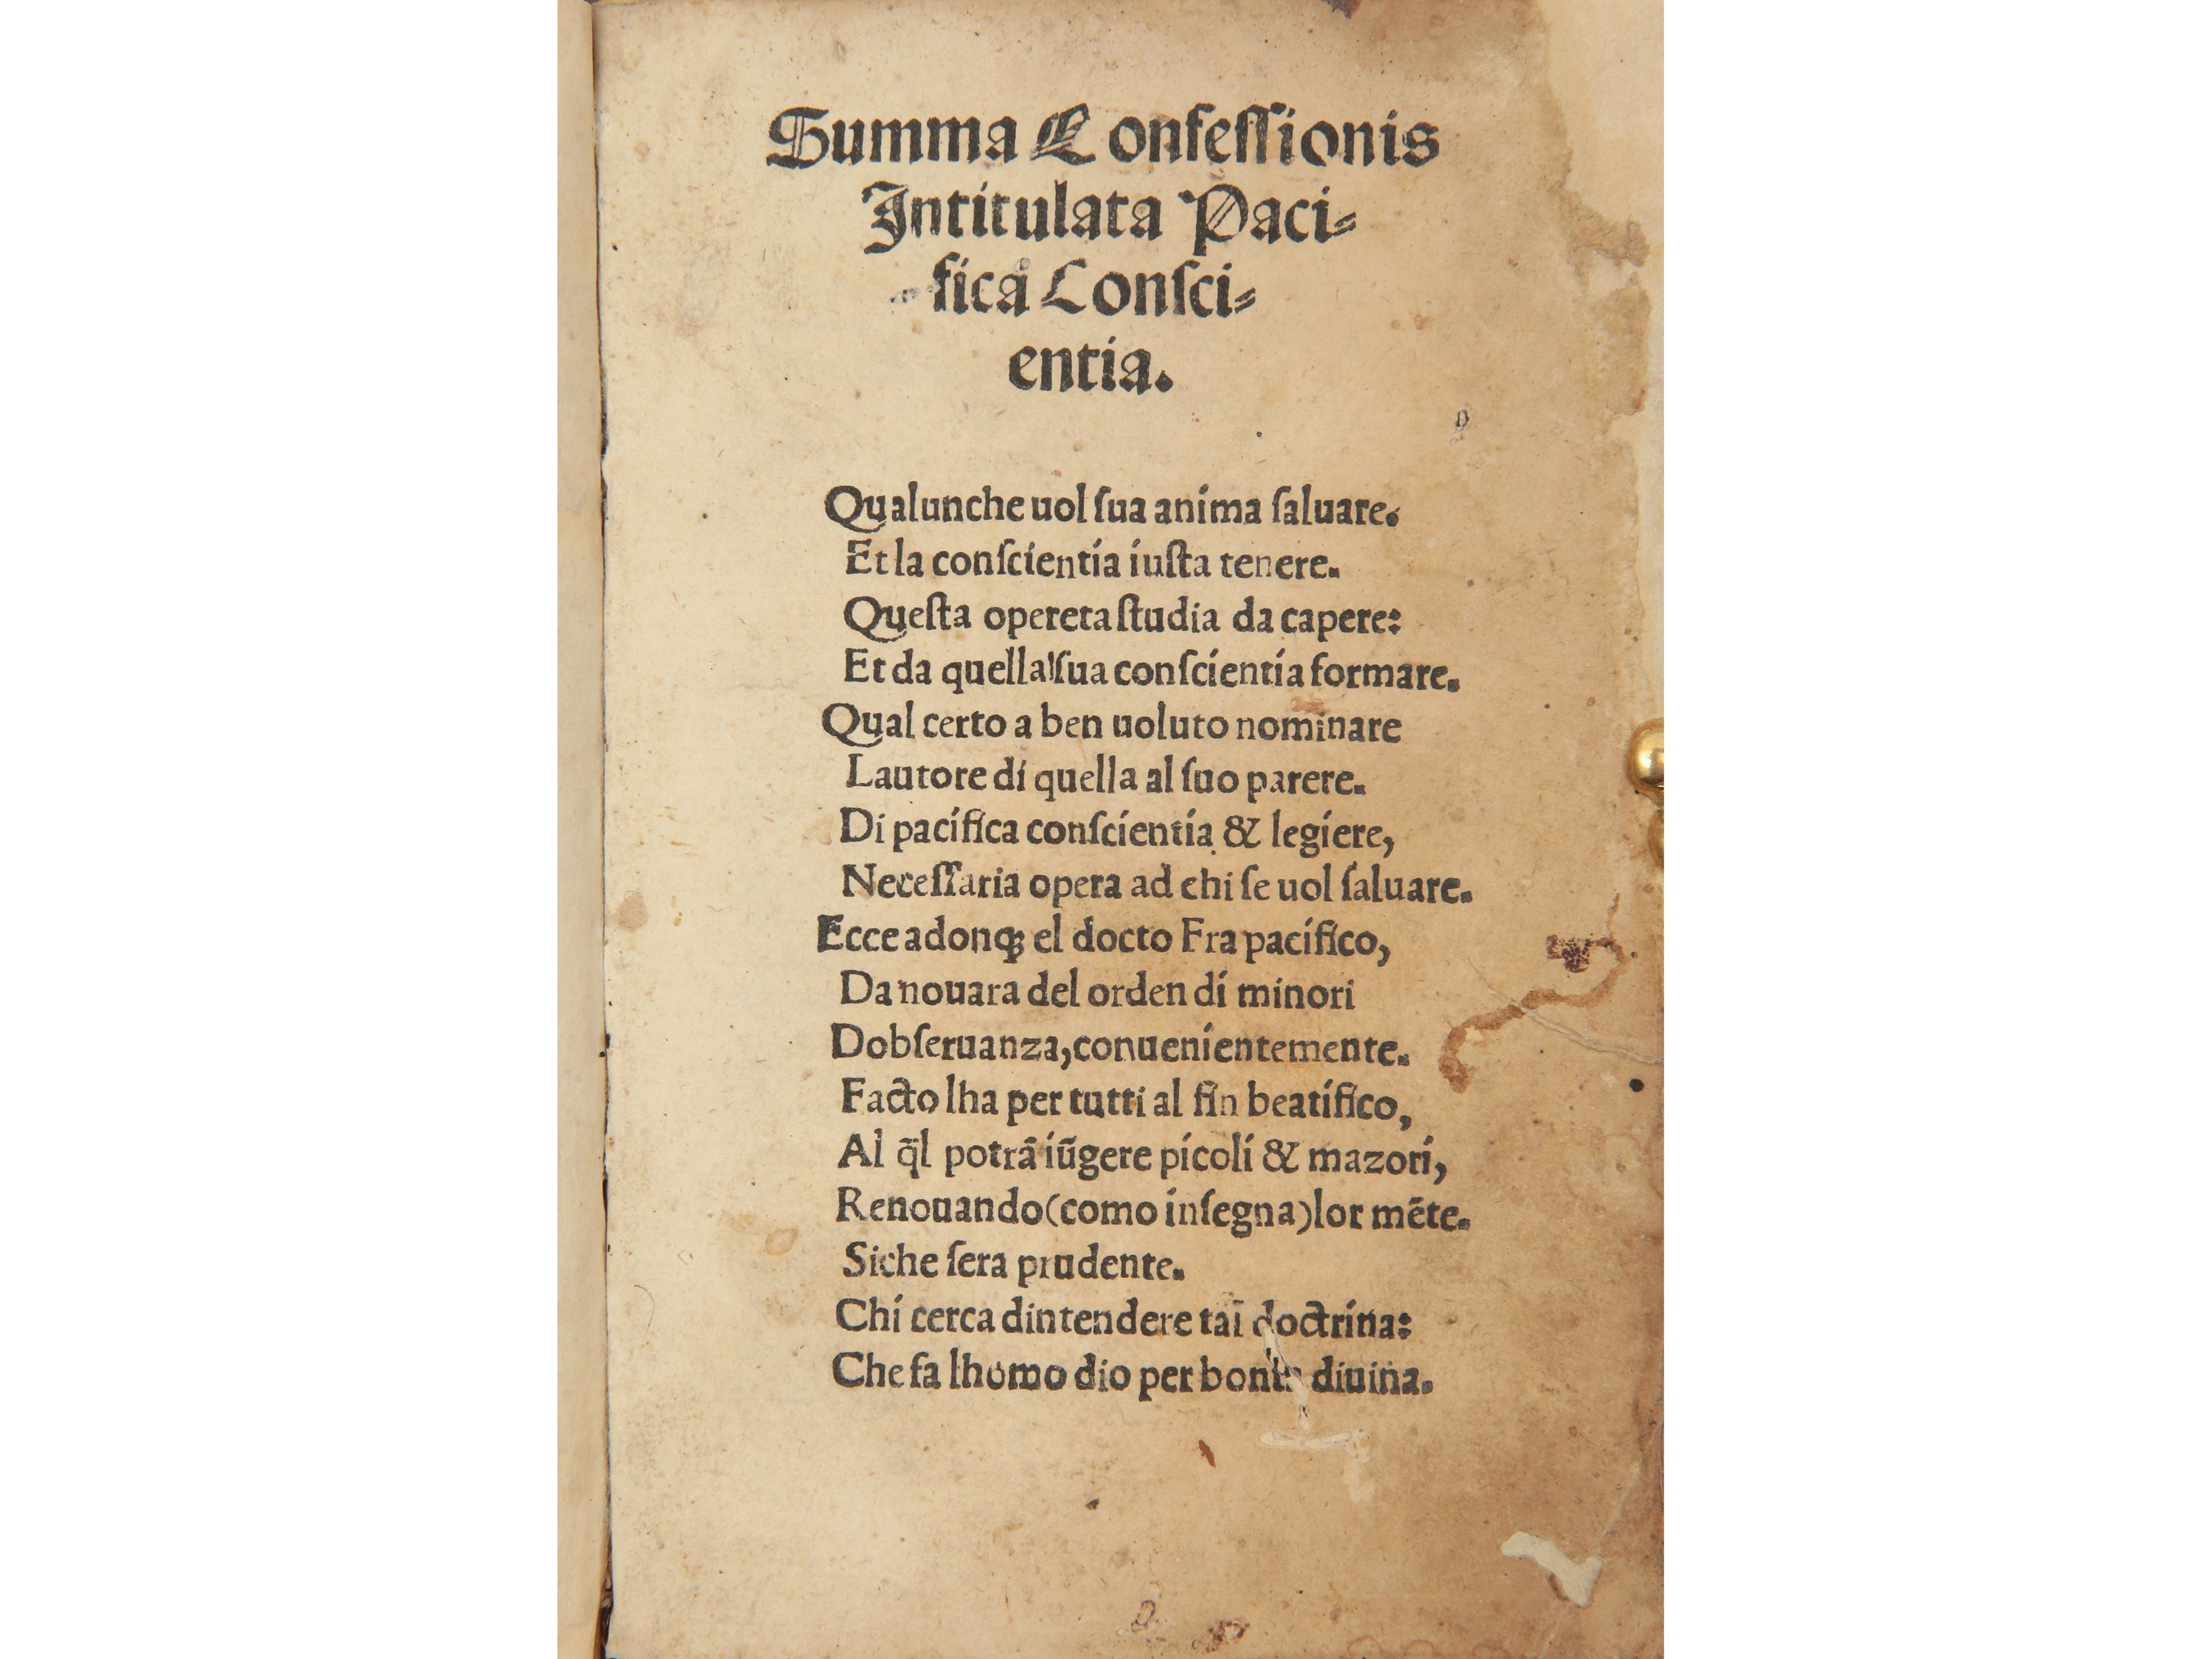 Summa Confeſſionis
Intitulata Paci⸗
fica Conſci⸗
entia.
Qualunche uol ſua anima ſaluare.
Et la conſcientia iuſta tenere.
Queſta opereta ſtudia da capere:
Et da quella ſua conſcientia formare.
Qual certo a ben uoluto nominare
Lautore di quella al ſuo parere.
Di pacifica conſcientia & legiere,
Neceſſaria opera ad chi ſe uol ſaluare.
Ecce adonqꝫ el docto Fra pacifico,
Da nouara del orden di minori
Dobſeruanza,conuenientemente.
Facto lha per tutti al fin beatifico,
Al q̃l potrã iũgere picoli & mazori,
Renouando(como inſegna)lor mẽte.
Siche ſera prudente.
Chi cerca dintendere tal doctrina:
Che fa lhomo dio per diuina.